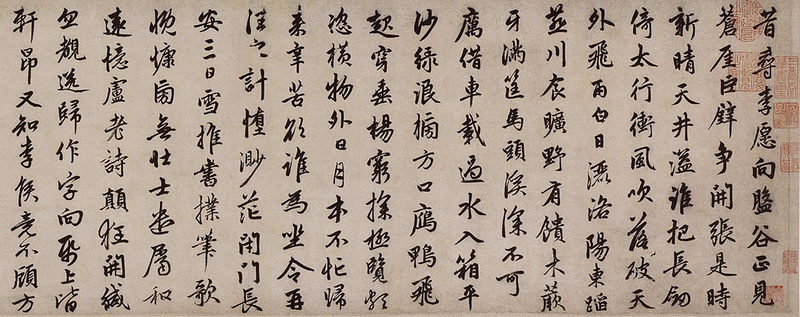 昔尋李愿向盤谷正見
蒼崖巨壁爭開張是時
新晴天井溢誰把長劒
倚太行衝風吹落破天
外飛雨白日灑洛陽東蹈
燕川食曠野有饋木蕨
牙滿筐馬頭溪深不可
厲借車載過水入箱平
沙綠浪榜方口鴈鴨飛
起穿垂楊窮探極覽頗
恣橫物外日月本不忙歸
來辛苦欲誰為坐令再
往之計墮渺茫閉門長
安三日雪推書撲筆歌
慨慷旁無壯士遣屬和
遠憶盧老詩顛狂開緘
忽覩送歸作字向紙上皆
軒昂又知李侯竟不顧方